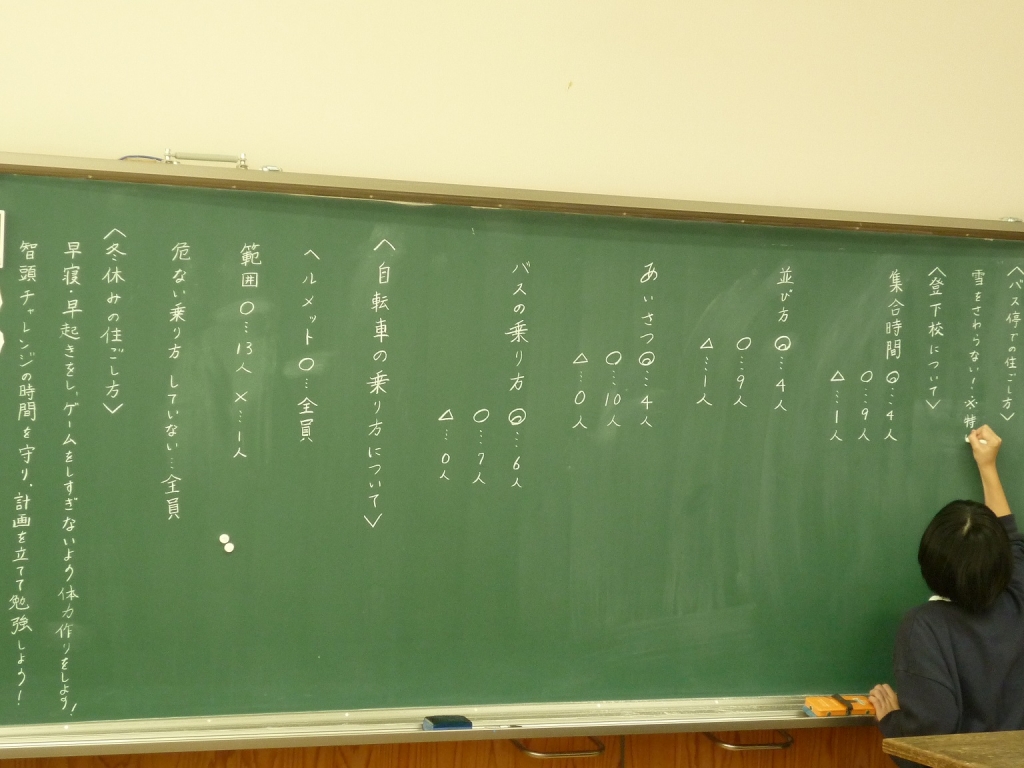 〈バス停での過ごし方〉
雪をさわらない!…※特
〈登下校について〉
集合時間 ◎…4人
○…9人
△…1人
並び方 ◎…4人
○…9人
△…1人
あいさつ ◎…4人
○…10人
△…0人
バスの乗り方 ◎…6人
○…7人
△…0人
〈自転車の乗り方について〉
ヘルメット ○…全員
範囲 ○…13人 ×…1人
危ない乗り方 していない…全員
〈冬休みの過ごし方〉
早寝・早起きをし、ゲームをしすぎないよう体力作りをしよう!
智頭チャレンジの時間を守り、計画を立てて勉強しよう!